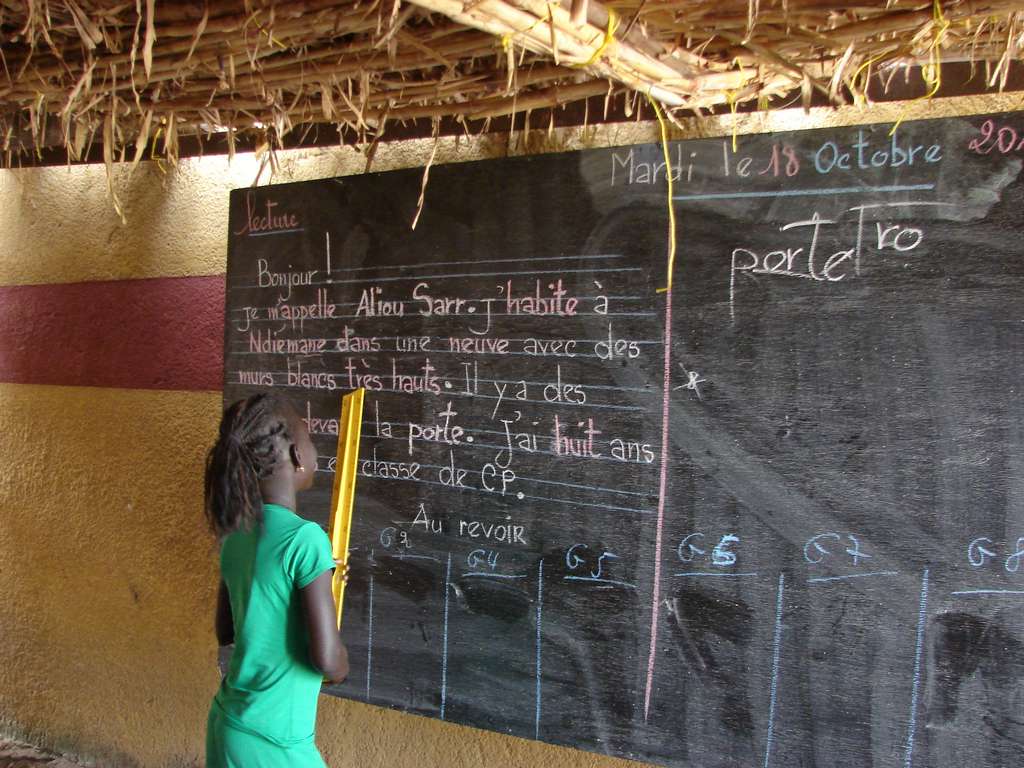 Mardi le 18 Octobre
lecture
Bonjour !
je m'appelle Aliou Sarr. j'habite à
Ndiemane dans une neuve avec des
murs blancs très hauts. Il y a des
la porte. J'ai huit ans
classe de CP.
Au revoir
porte Tro
G2 G4 G5 G6 G7 G8